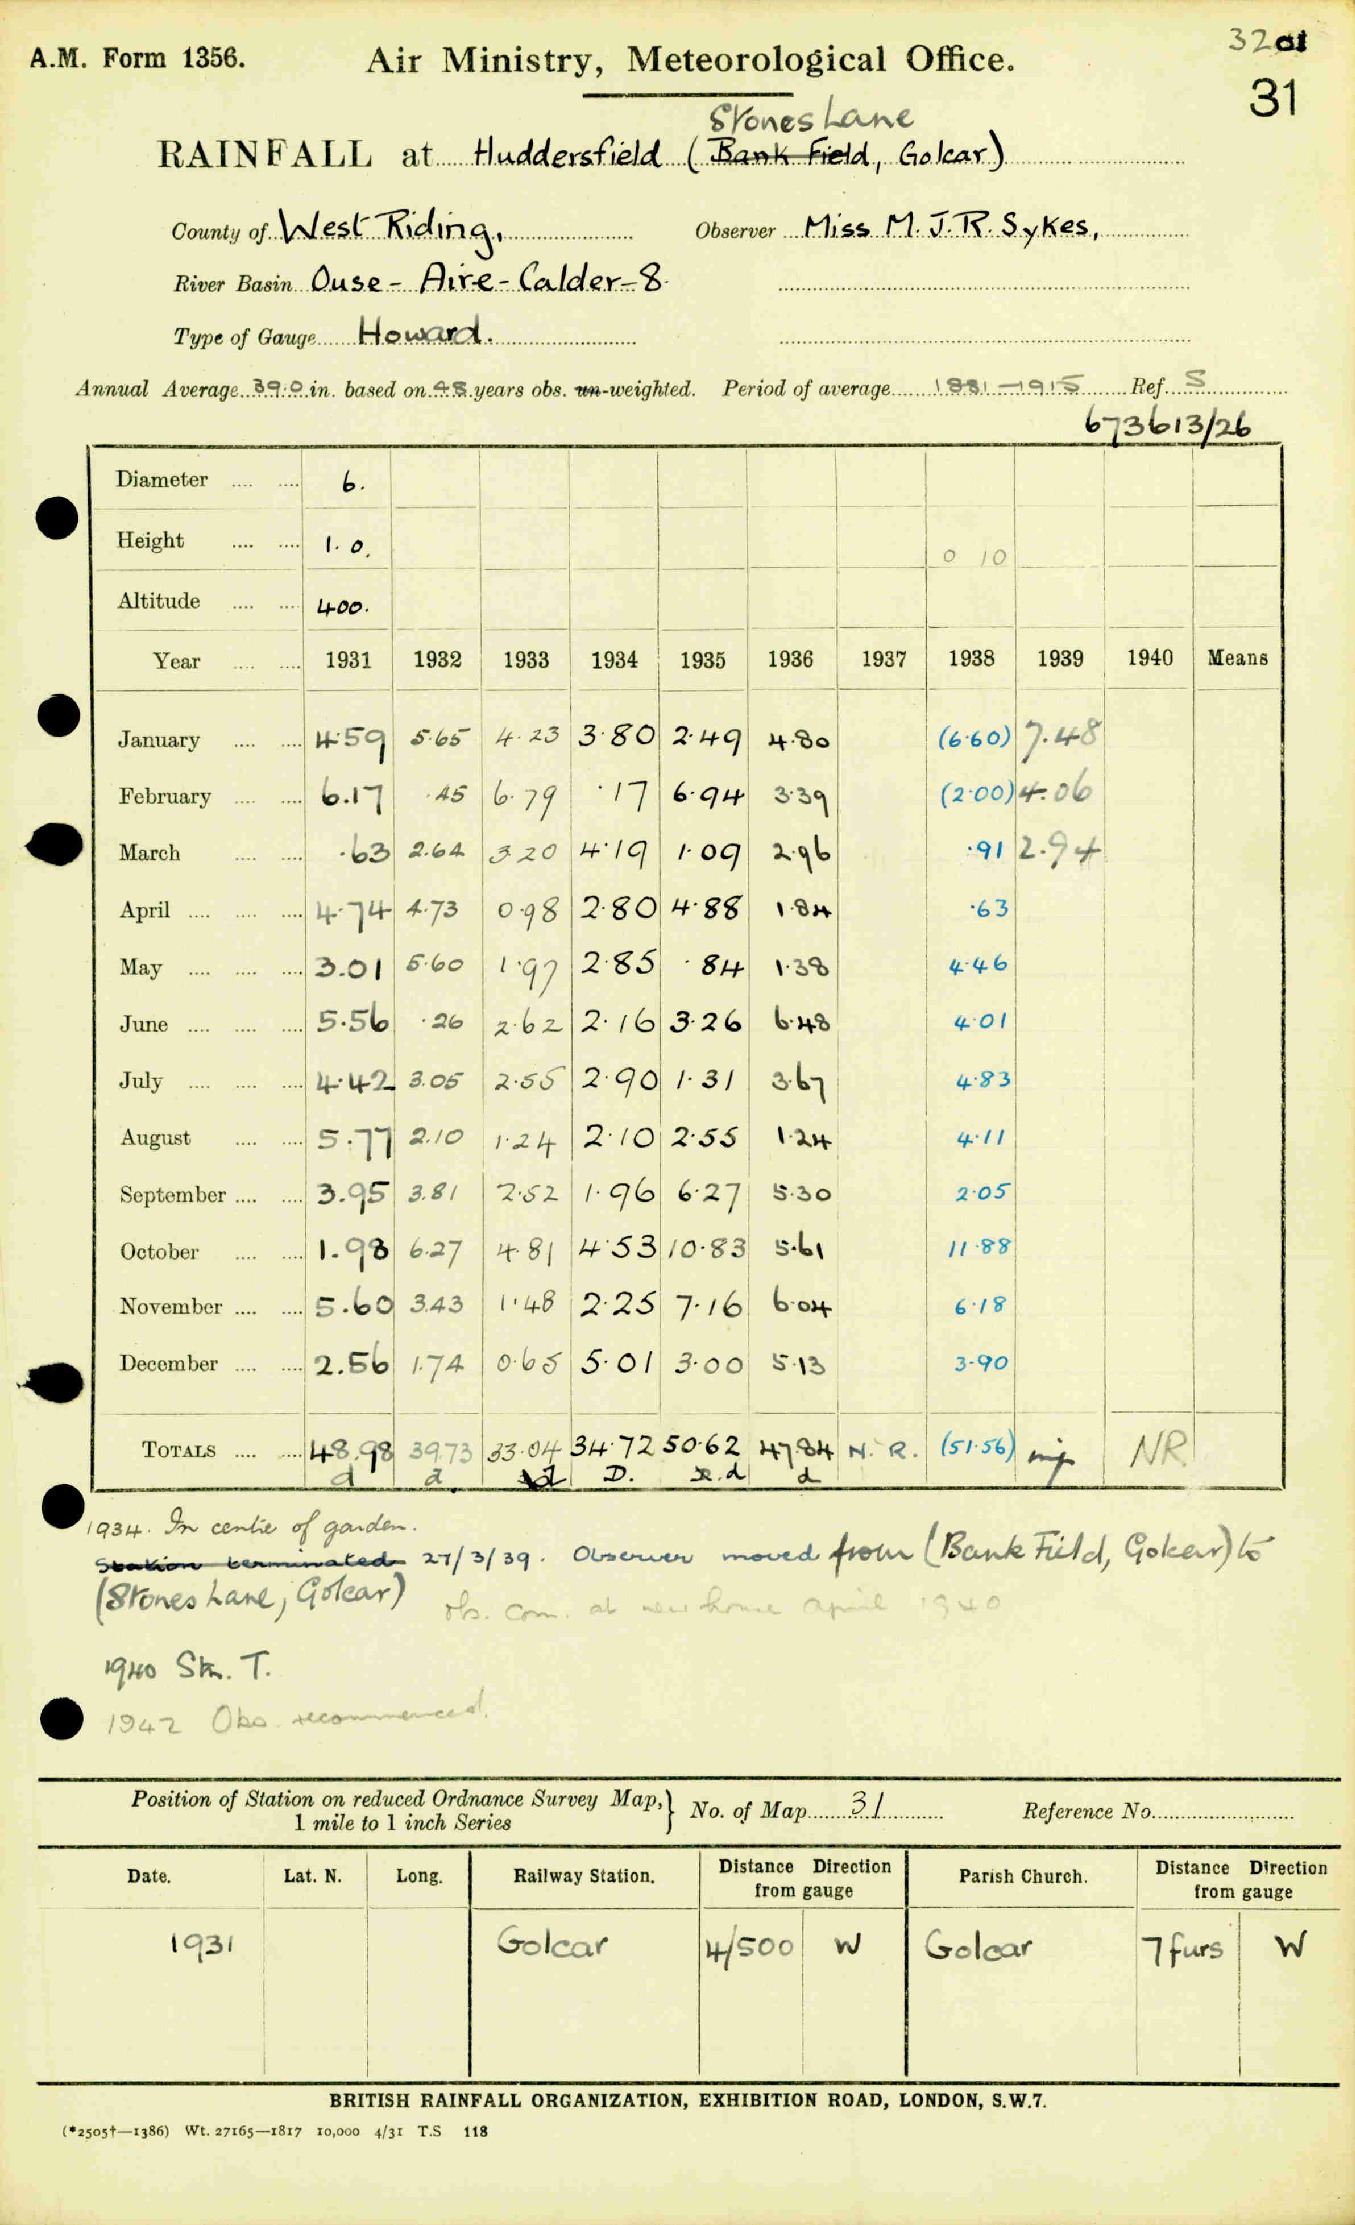 32
31
A.M. Form 1356. Air Ministry, Meteorological Office.
Stones Lane
RAINFALL at Huddersfield (Bank Field, Golcar)
County of West Riding, Observer Miss M. J. R. Sykes,
River Basin Ouse - Aire - Calder - 8
Type of Gauge Howard.
Annual Average 39.0 in. based on 48 years obs. un-weighted. Period of average 1881-1915 Ref. S
673613/26
Diameter .... .... 6.
Height .... .... 1. 0. 0 10
Altitude .... .... 400.
Year .... .... 1931 1932 1933 1934 1935 1936 1937 1938 1939 1940 Means
January .... .... 4.59 5.65 4.23 3.80 2.49 4.80 (6.60) 7.48
February .... .... 6.17 .45 6.79 .17 6.94 3.39 (2.00) 4.06
March .... .... .63 2.64 3.20 4.19 1.09 2.96 .91 2.94
April .... .... .... 4.74 4.73 0.98 2.80 4.88 1.84 .63
May .... .... .... 3.01 5.60 1.97 2.85 .84 1.38 4.46
June .... .... .... 5.56 .26 2.62 2.16 3.26 6.48 4.01
July .... .... .... 4.42 3.05 2.55 2.90 1.31 3.67 4.83
August .... .... 5.77 2.10 1.24 2.10 2.55 1.24 4.11
September .... .... 3.95 3.81 2.52 1.96 6.27 5.30 2.05
October .... .... 1.98 6.27 4.81 4.53 10.83 5.61 11.88
November .... .... 5.60 3.43 1.48 2.25 7.16 6.04 6.18
December .... .... 2.56 1.74 0.65 5.01 3.00 5.13 3.90
TOTALS .... .... 48.98 39.73 33.04 34.72 50.62 47.84 N. R. (51.56) NR
d d d D. d d
1934. In centre of garden.
Station terminated 27/3/39. Observer moved from (Bank Field, Golcar) to
(Stones Lane, Golcar) obs. com. at new house April 1940
1940 Stn. T.
1942 Obs. recommenced.
Position of Station on reduced Ordnance Survey Map,} No. of Map 31 Reference No.
1 mile to 1 inch Series
Date. Lat. N. Long. Railway Station. Distance Direction from gauge Parish Church. Distance Direction from gauge
1931 Golcar 4/500 W Golcar 7 furs W
BRITISH RAINFALL ORGANIZATION, EXHIBITION ROAD, LONDON, S.W.7.
(*2505†—1386) Wt. 27165—1817 10,000 4/31 T.S 118